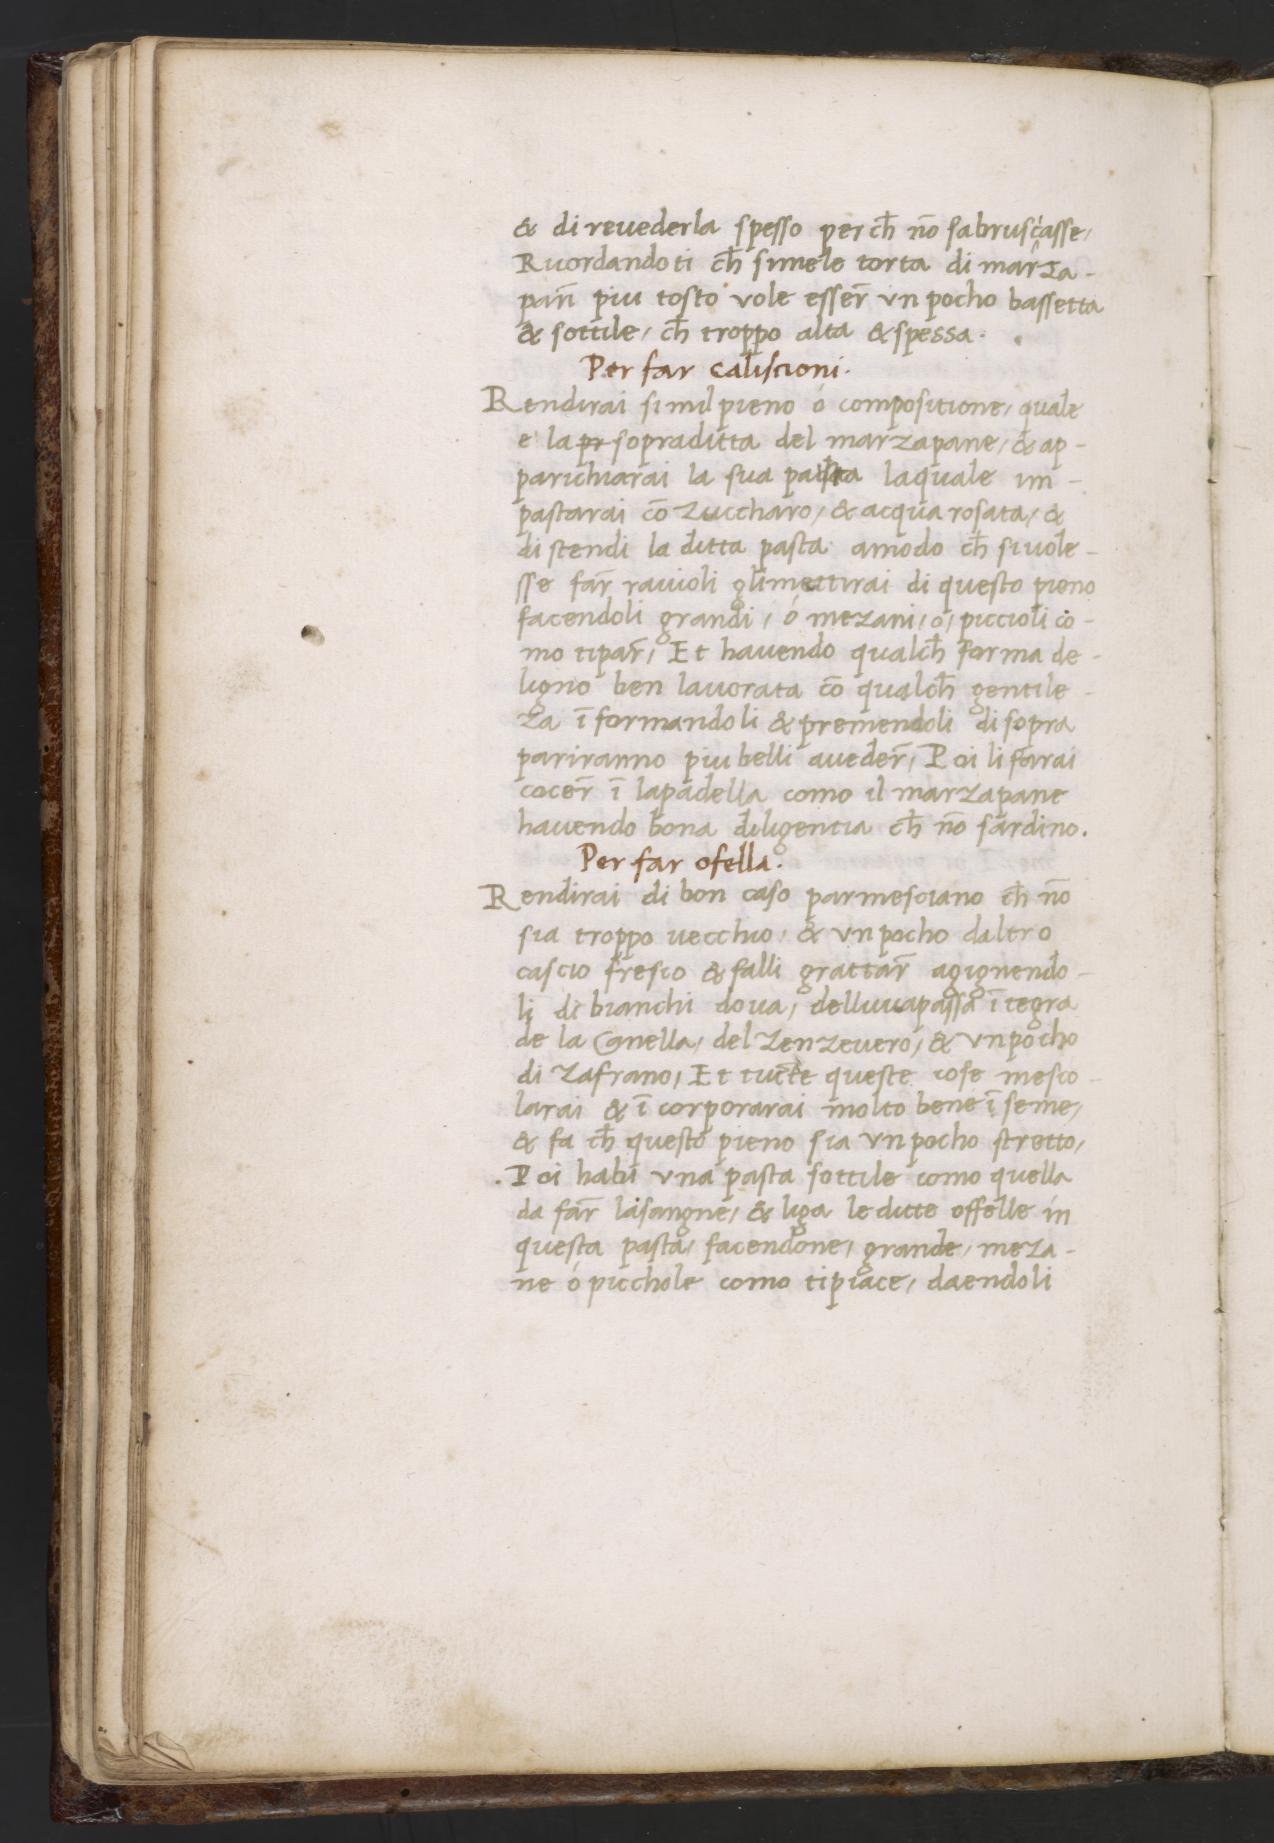 & di reuederla spesso per ch̄ nō sabrusciasse,
Ricordandoti ch̄ simele torta di marza-
pan̄ piu tosto vole esser̄ vn pocho bassetta
& sottile, ch̄ troppo alta & spessa.
Per far caliscioni.
Rendirai simil pieno ó compositione, quale
e' la sopraditta del marzapane, & ap-
parichiarai la sua pasta laquale im-
pastarai cō zuccharo, & acqua rosata, &
distendi la ditta pasta amodo ch̄ si uole-
sse far̄ rauioli glimettirai di questo pieno
facendoli grandi, ó mezani, o, piccioli co-
mo tipar̄, Et hauendo qualch̄ forma de-
ligno ben lauorata cō qualch̄ gentile-
za ī formandoli & premendoli di sopra
pariranno piu belli aueder̄, Poi li farai
cocer̄ ī lapadella como il marzapane
hauendo bona diligentia ch̄ nō sardino.
Per far ofella.
Rendirai di bon caso parmesciano ch̄ nō
sia troppo vecchio, & vn pocho daltro
cascio fresco & falli grattar̄ agignendo-
li di bianchi doua, delluuapassa ītegra
de la Canella, del zenzeuero, & vn pocho
di zafrano, Et tutte queste cose mesco-
larai & ī corporarai molto bene ī seme,
& fa ch̄ questo pieno sia vn pocho stretto,
. Poi habi vna pasta sottile como quella
da far̄ lasangne, & liga le ditte offelle in
questa pasta, facendone, grande, meza-
ne ó picchole como tipiace, daendoli